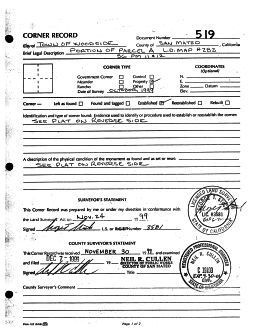 CORNER RECORD
Document Number 519
City of TOWN OF WOODSIDE County of SAN MATEO, California
Brief Legal Description PORTION OF PARCEL A LD. MAP #283
56 PM 11 & 12
CORNER TYPE
COORDINATES
(Optional)
Government Corner Control
Meander Property
Rancho Other
Date of Survey OCTOBER, 1999
N.
E.
Zone Datum
Elev.
Corner — Left as found Found and tagged Established Reestablished Rebuilt
Identification and type of corner found: Evidence used to identify or procedure used to establish or reestablish the corner:
SEE PLAT ON REVERSE SIDE
A description of the physical condition of the monument as found and as set or reset:
SEE PLAT ON REVERSE SIDE
SURVEYOR'S STATEMENT
This Corner Record was prepared by me or under my direction in conformance with
the Land Surveyors' Act on NOV. 24 1999
Signed L.S. 3581
COUNTY SURVEYOR'S STATEMENT
This Corner Record was received NOVEMBER 30 1999, and examined
and filed DEC 7 1999
NEIL R. CULLEN
DIRECTOR OF PUBLIC WORKS
COUNTY OF SAN MATEO
Signed
County Surveyor's Comment
Page 1 of 2